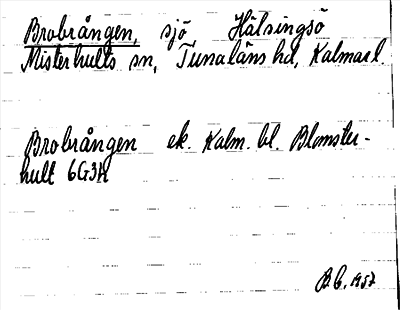 Brobrången, sjö Hälsingsö
Misterhults sn, Tunaläns hd, Kalmar l.
Brobrången ek. Kalm. bl. Blomster-
hult 6G3h
B.C. 1957